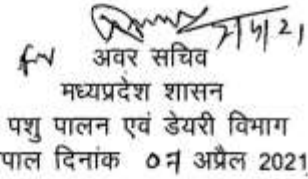 7/4/21
अवर सचिव
मध्यप्रदेश शासन
पशु पालन एवं डेयरी विभाग
पाल दिनांक 07 अप्रैल 2021